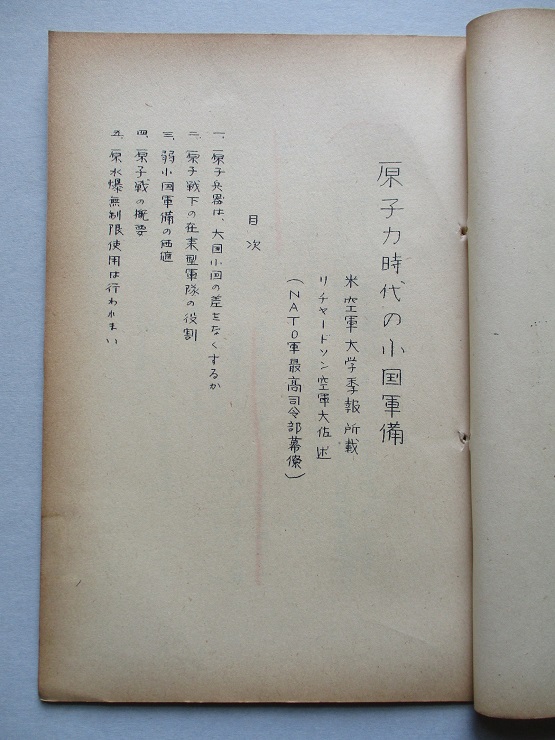 原子力時代の小国軍備
米空軍大学季報所載
リチャードソン空軍大佐述
(NATO軍最高司令部幕僚)
目次
一、原子兵器は、大国小国の差をなくするか
二、原子戦下の在来型軍隊の役割
三、弱小国軍備の価値
四、原子戦の概要
五、原水爆無制限使用は行われまい